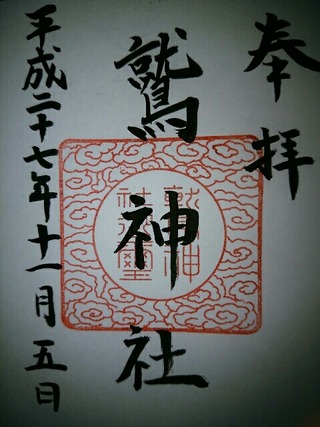 奉拝
鷲神社
鷲神社璽
平成二十七年十一月五日